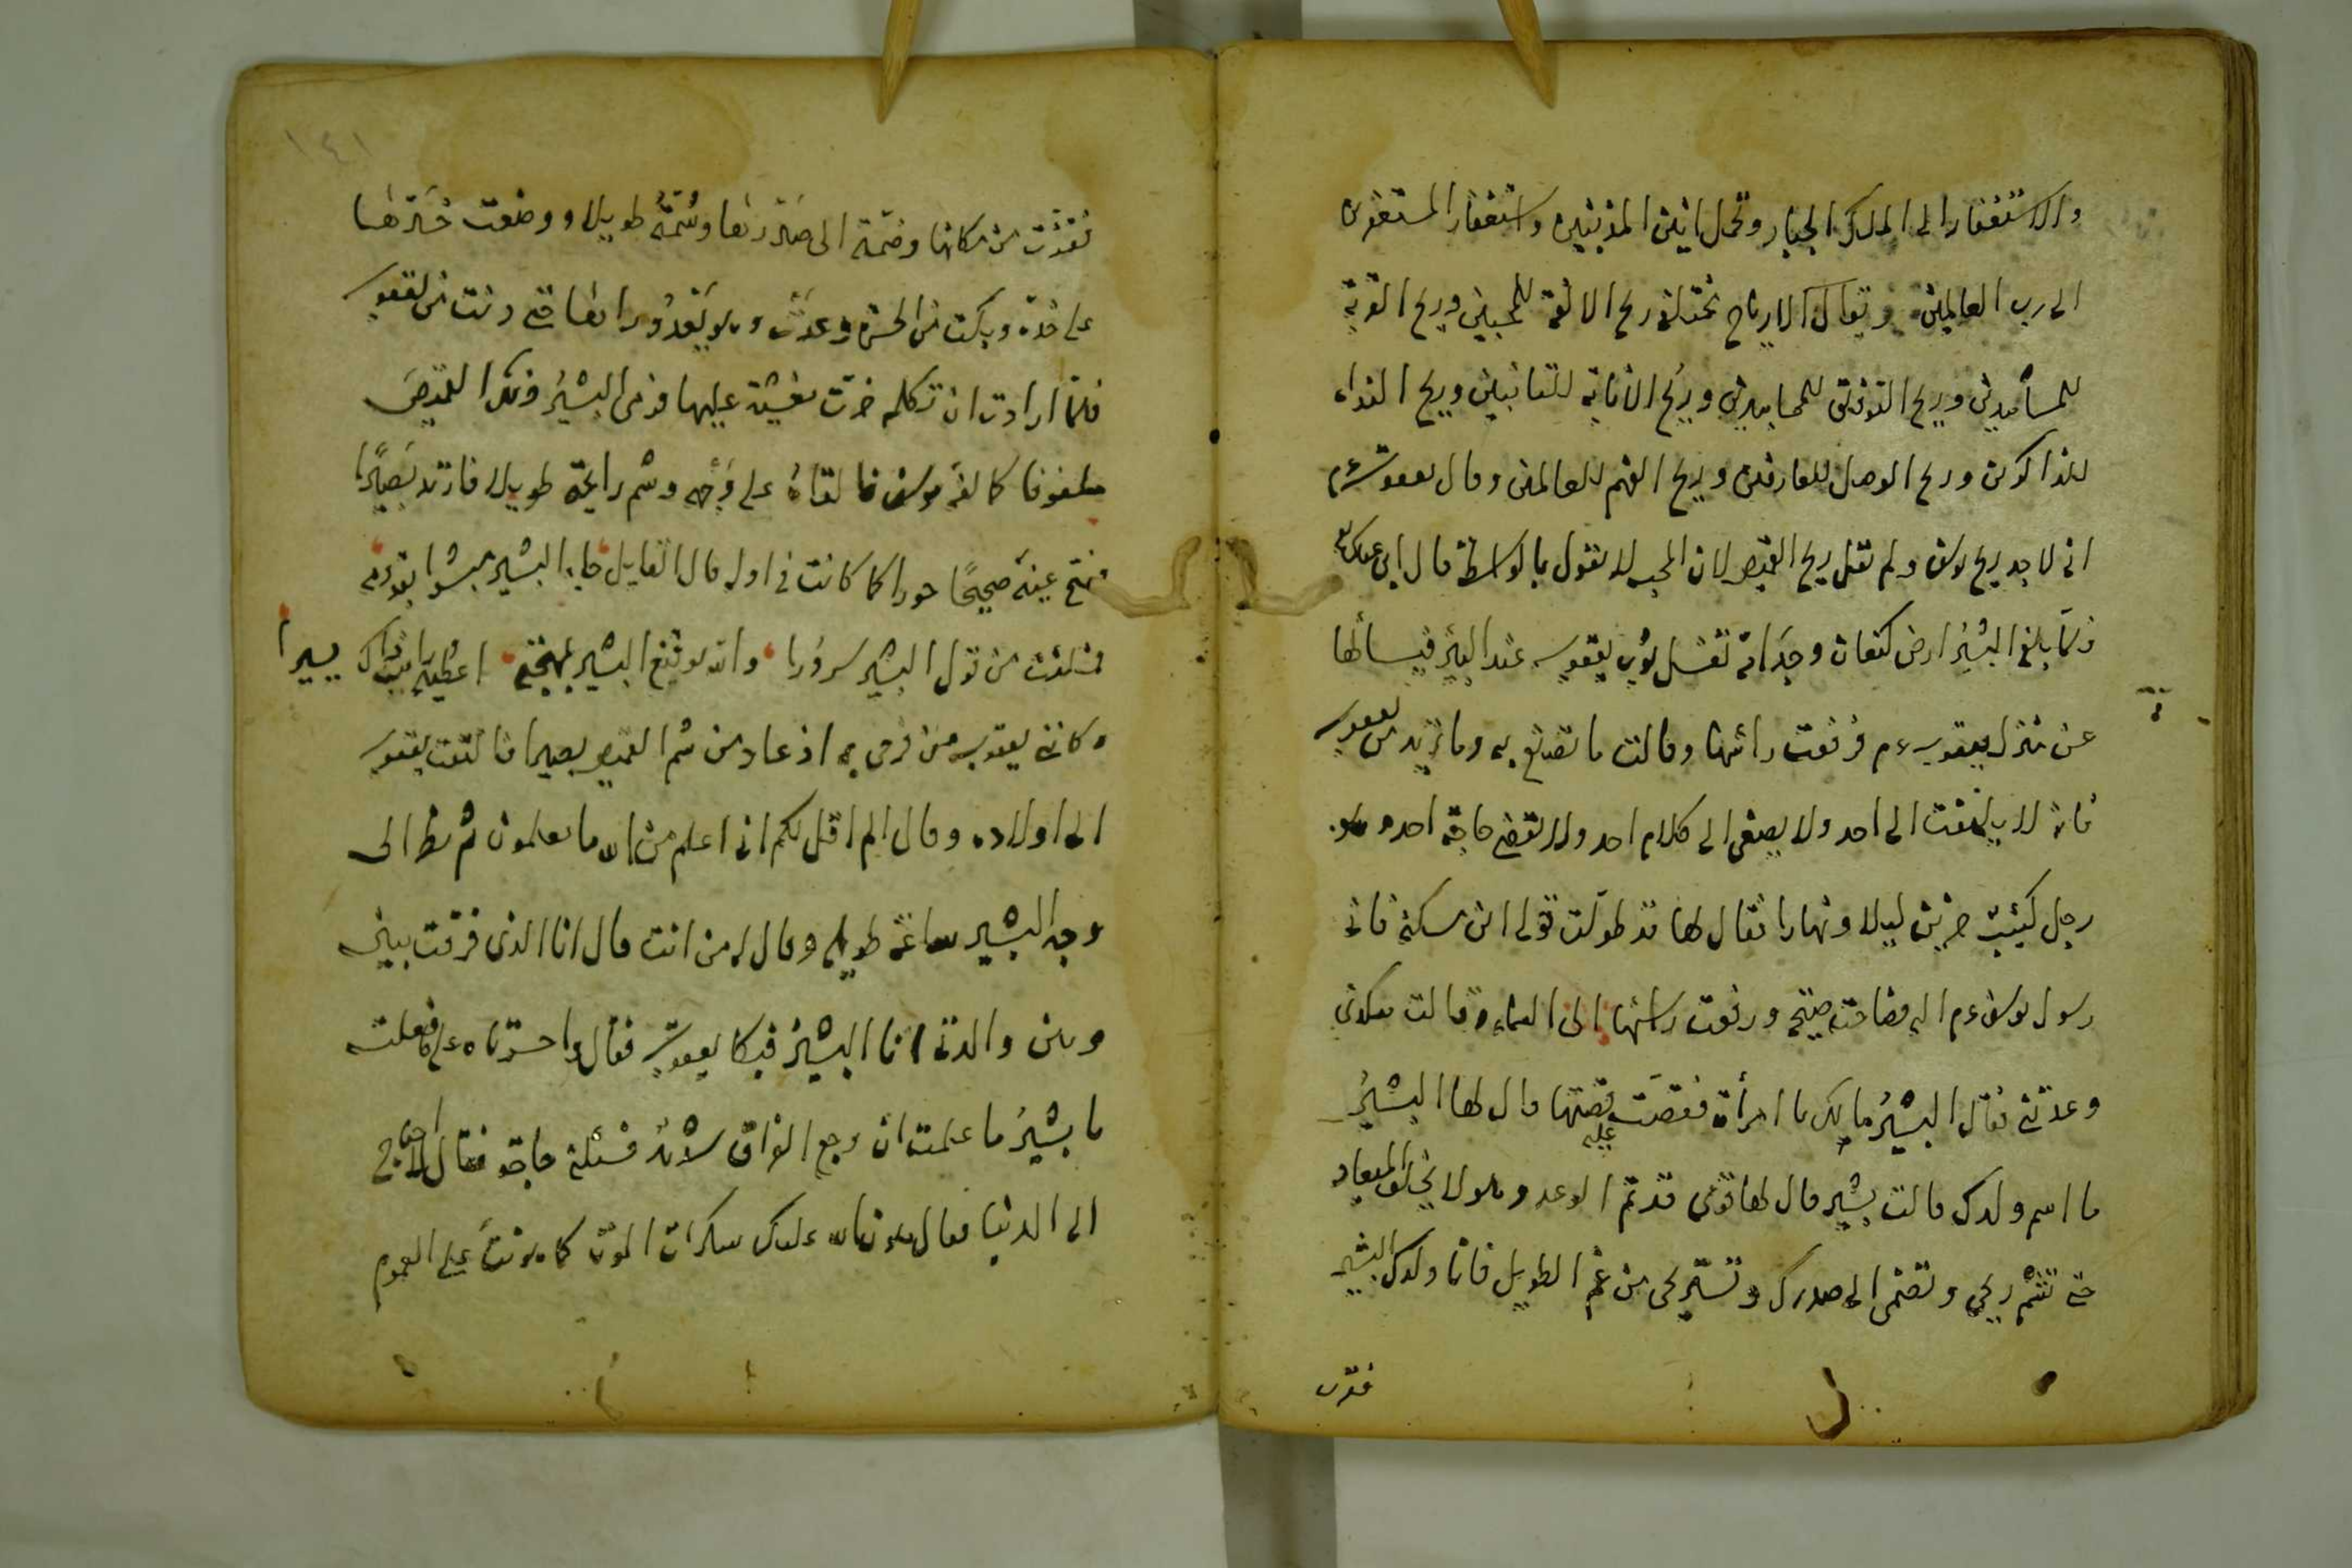 والاستغفار الى الملك الجبار وتحمل انين المذنبين واستغفار المستغفرين
الى رب العالمين ويقال الارياح مختلفة ريح الالفة للمحبين وريح القربة
للمشاهدين وريح التوفيق للمجاهدين وريح الانابة للتائبين وريح النداء
للذاكرين وريح الوصل للعارفين وريح الفهم للعالمين وقال يعقوب ءم
انى لاجد ريح يوسف ولم يقل ريح القميص لان المحب لا يقول بالواسطة قال ابن عباس
فلما بلغ البشير ارض كنعان وجد امة تغسل ثوب يعقوب عند البئر فيسألها
عن منزل يعقوب ءم فرفعت رأسها وقالت ما تصنع به وما تريد من يعقوب
فانه لا يلتفت الى احد ولا يصغى الى كلام احد ولا يقضى حاجة احد وهو
رجل كئيب حزين ليلا ونهارا فقال لها قد طولت قولى اين مسكنه فانى
رسول يوسف ءم اليه فصاحت صيحة ورفعت رأسها الى السماء وقالت هكذى
وعدتنى فقال البشير ما لك يا امرأة فقصت عليه قصتها قال لها البشير
ما اسم ولدك قالت بشير قال لها قومى قد تم الوعد وهو لا يخلف الميعاد
حتى تشم ريحى وتضمنى الى صدرك وتستريحى من غم الطويل فانا ولدك البشير
فقرت
فقرت من مكانها وضمته الى صدرها وشمته طويلا ووضعت خدها
على خده وبكت من الحسرة وعدت وهو يعدو راءها حتى دنت من يعقوب
فلما ارادت ان تكلمه خرت مغشية عليها فدنى البشير وهكذا القميص
ملفوفا كالفه يوسف فالقاه على وجهه وشم رائحة طويلا فارتد بصيرا
وفتح عينه صحيحا حورا كما كانت فى اوله قال القايل جاء البشير مبشرا بقدومه
فملئت من قول البشير سرورا والله لو قنع البشير بمهجتى اعطيته ورأيت ذاك يسيرا
وكان يعقوب من فرحه اذ عاد من شم القميص بصيرا فالتفت يعقوب
الى اولاده وقال الم اقل لكم انى اعلم من الله ما لا تعلمون ثم نظر الى
وجه البشير ساعة طويلة وقال له من انت قال انا الذى فرقت بينى
وبين والدتى انا البشير فبكا يعقوب فقال واحسرتاه على ما فعلت
يا بشير ما علمت ان وجع الفراق شديد فسئلنى حاجة فقال لا احتاج
الى الدنيا فقال هون الله عليك سكرات الموت كما هونت على الهموم
١٤١